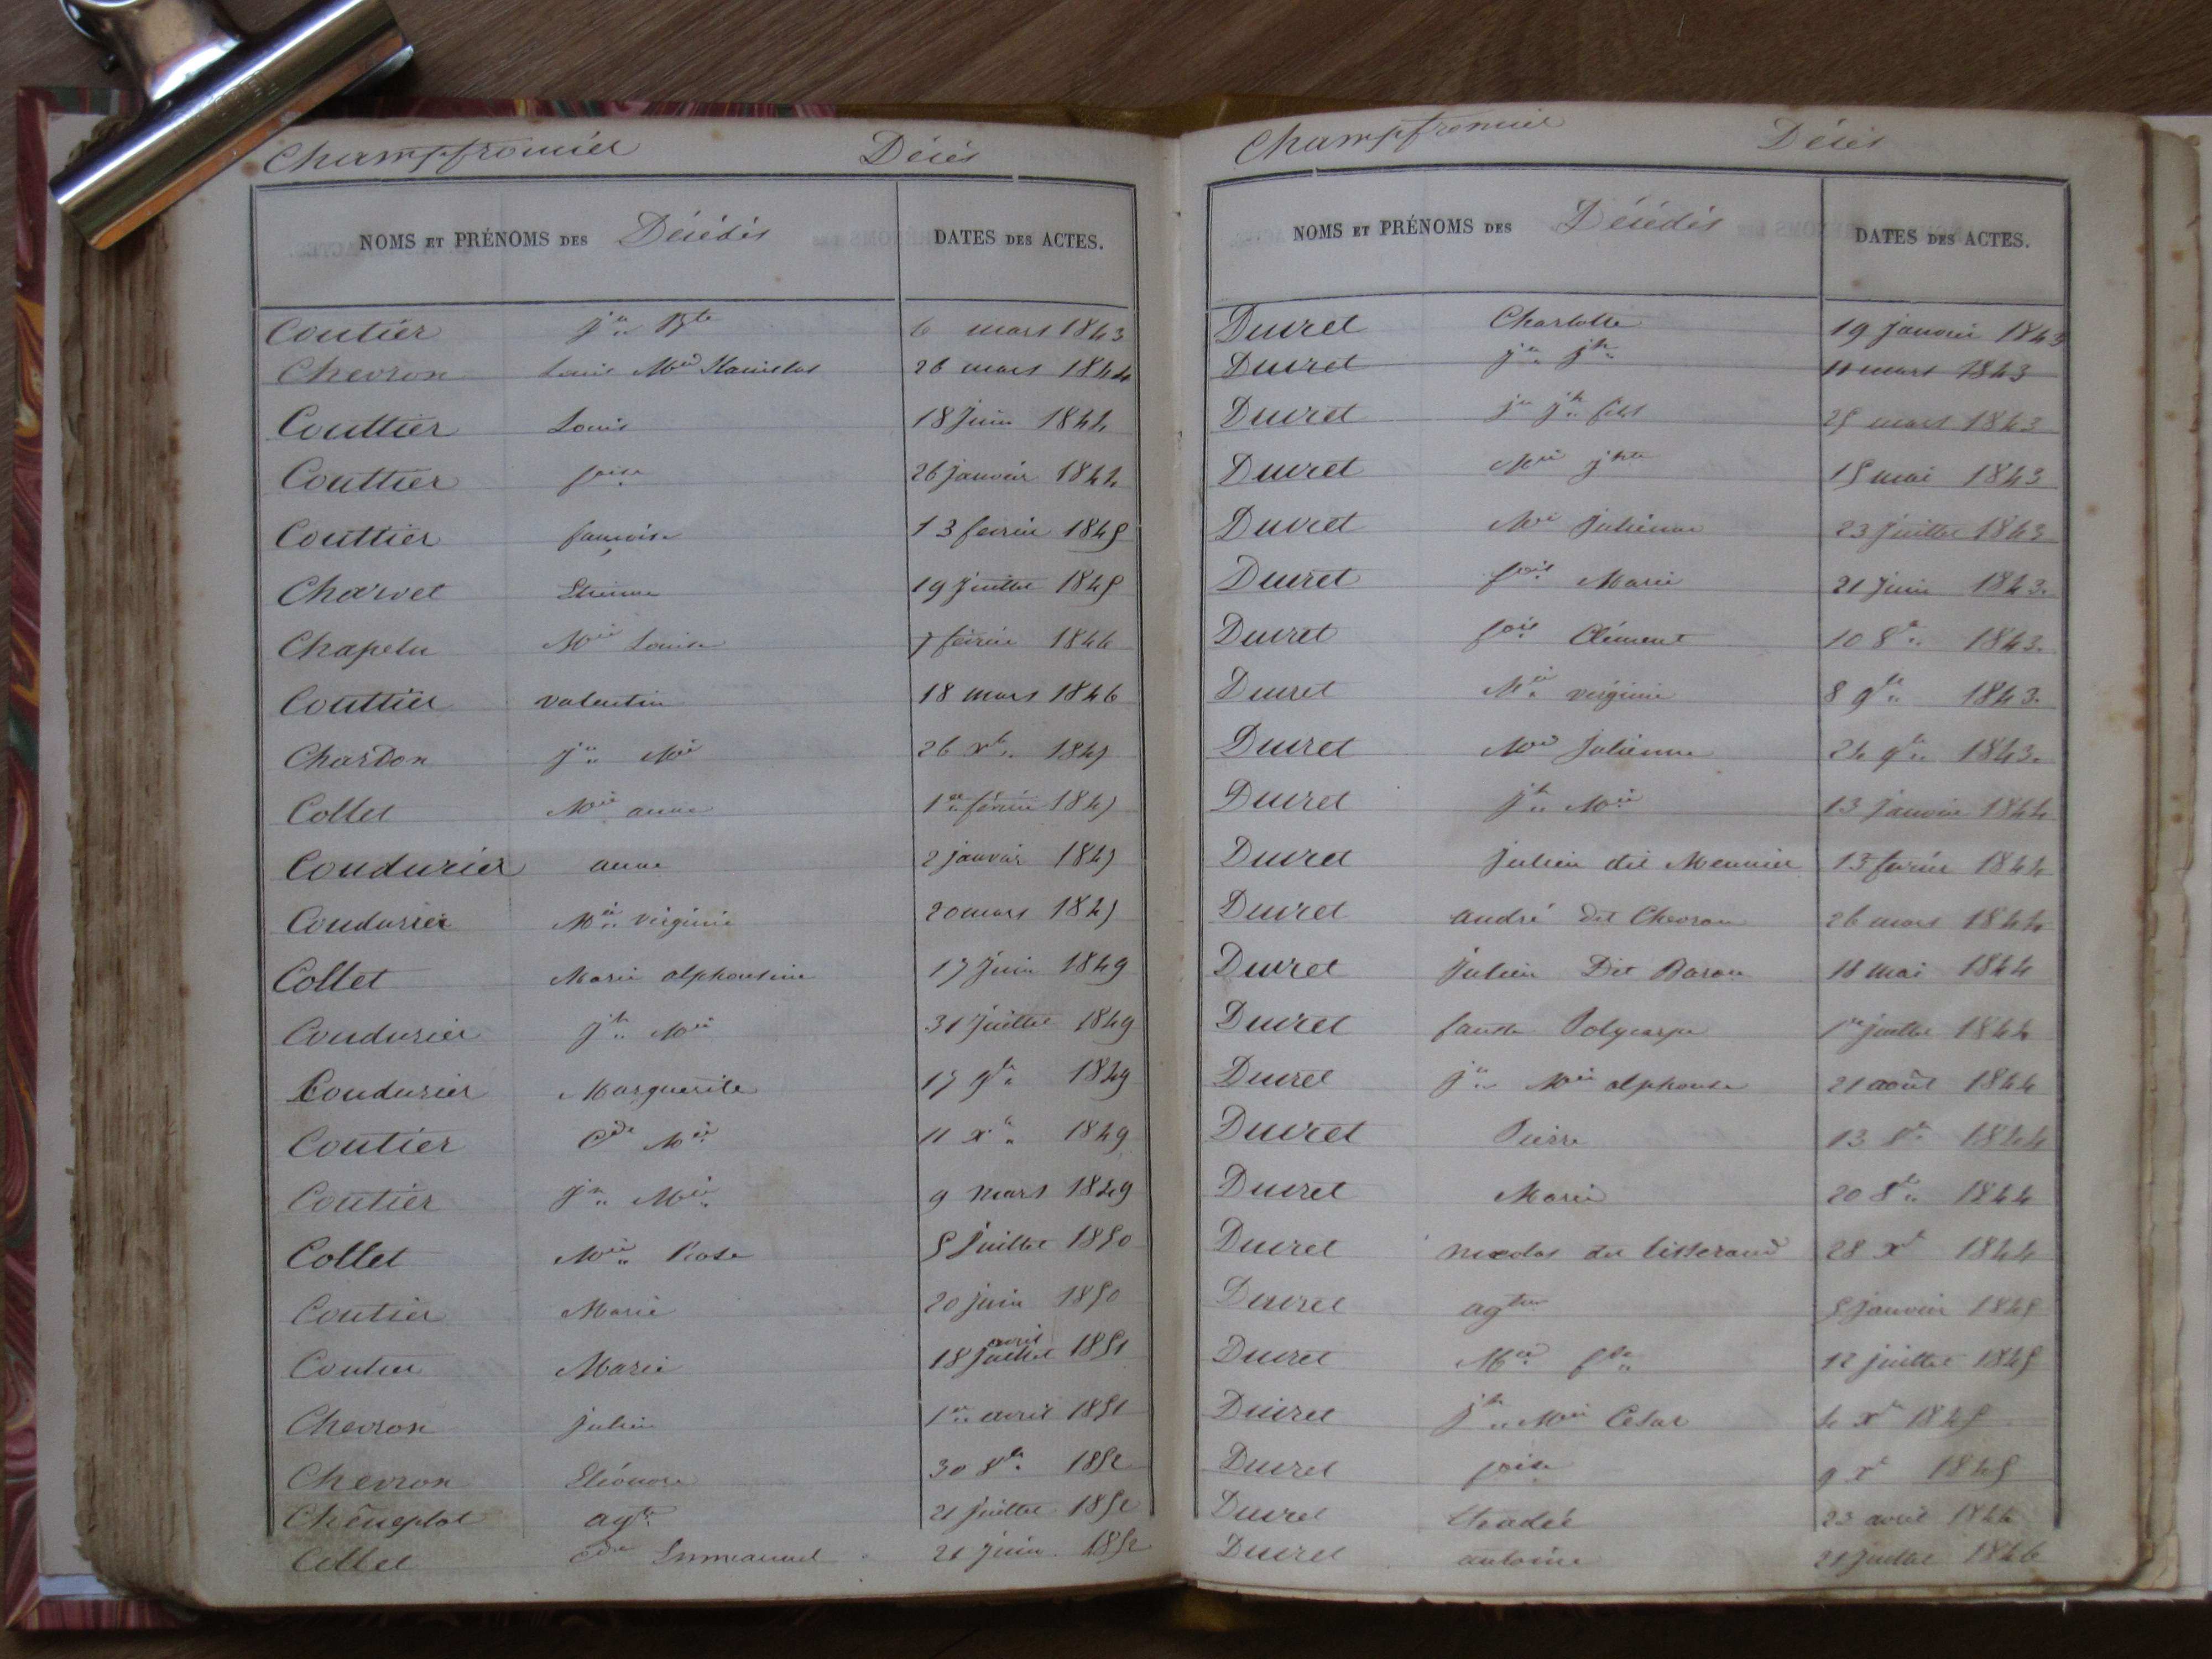 Champfromier Décès
NOMS ET PRÉNOMS DES Décédés DATES DES ACTES.
Coutier Jn Bte 6 mars 1843
Chevron Louis Mie Stanislas 26 mars 1844
Couttier Louis 18 Juin 1844
Couttier foise 26 janvier 1844
Couttier françoise 13 fevrier 1845
Charvet Etienne 19 Juillet 1845
Chapelu Mie Louise 7 février 1846
Couttier valentin 18 mars 1846
Chardon Jn Mie 26 xbre 1847
Collet Mie anne 1er février 1847
Coudurier anne 2 janvier 1847
Coudurier Mie virginie 20 mars 1847
Collet Marie alphonsine 17 Juin 1849
Coudurier Jh Mie 31 Juillet 1849
Coudurier Marguerite 17 9bre 1849
Coutier Mie 11 xbre 1849
Coutier Jn Mie 9 mars 1849
Collet Mie Rose 5 Juillet 1850
Coutier Marie 20 juin 1850
Coutier Marie 18 avril 1851
Chevron julien 1er avril 1851
Chevron Eléonore 30 8bre 1852
Chêneplot agte 21 juillet 1852
Collet Emmanuel 21 juin 1852
Champfromier Décès
NOMS ET PRÉNOMS DES Décédés DATES DES ACTES.
Ducret Charlotte 19 janvier 1843
Ducret jn jh 11 mars 1843
Ducret jn jh fils 25 mars 1843
Ducret Mie jhte 15 mai 1843
Ducret Mie Julienne 23 juillet 1843
Ducret fois Marie 21 juin 1843
Ducret fois Clément 10 8bre 1843
Ducret Mie virginie 8 9bre 1843
Ducret Mie Julienne 24 9bre 1843
Ducret jh Mie 13 janvier 1844
Ducret julien dit Meunier 13 février 1844
Ducret andré dit Chevron 26 mars 1844
Ducret julien Dit Baron 18 mai 1844
Ducret fauste Polycarpe 1er juillet 1844
Ducret jn Mie alphonse 21 août 1844
Ducret Pierre 13 8bre 1844
Ducret Marie 20 8bre 1844
Ducret nicolas dit tisserand 28 xbre 1844
Ducret agtin 5 janvier 1845
Ducret Mie 12 juillet 1845
Ducret jh Mie César 4 xbre 1845
Ducret foise 9 xbre 1845
Ducret thadée 23 avril 1846
Ducret antoine 21 juillet 1846